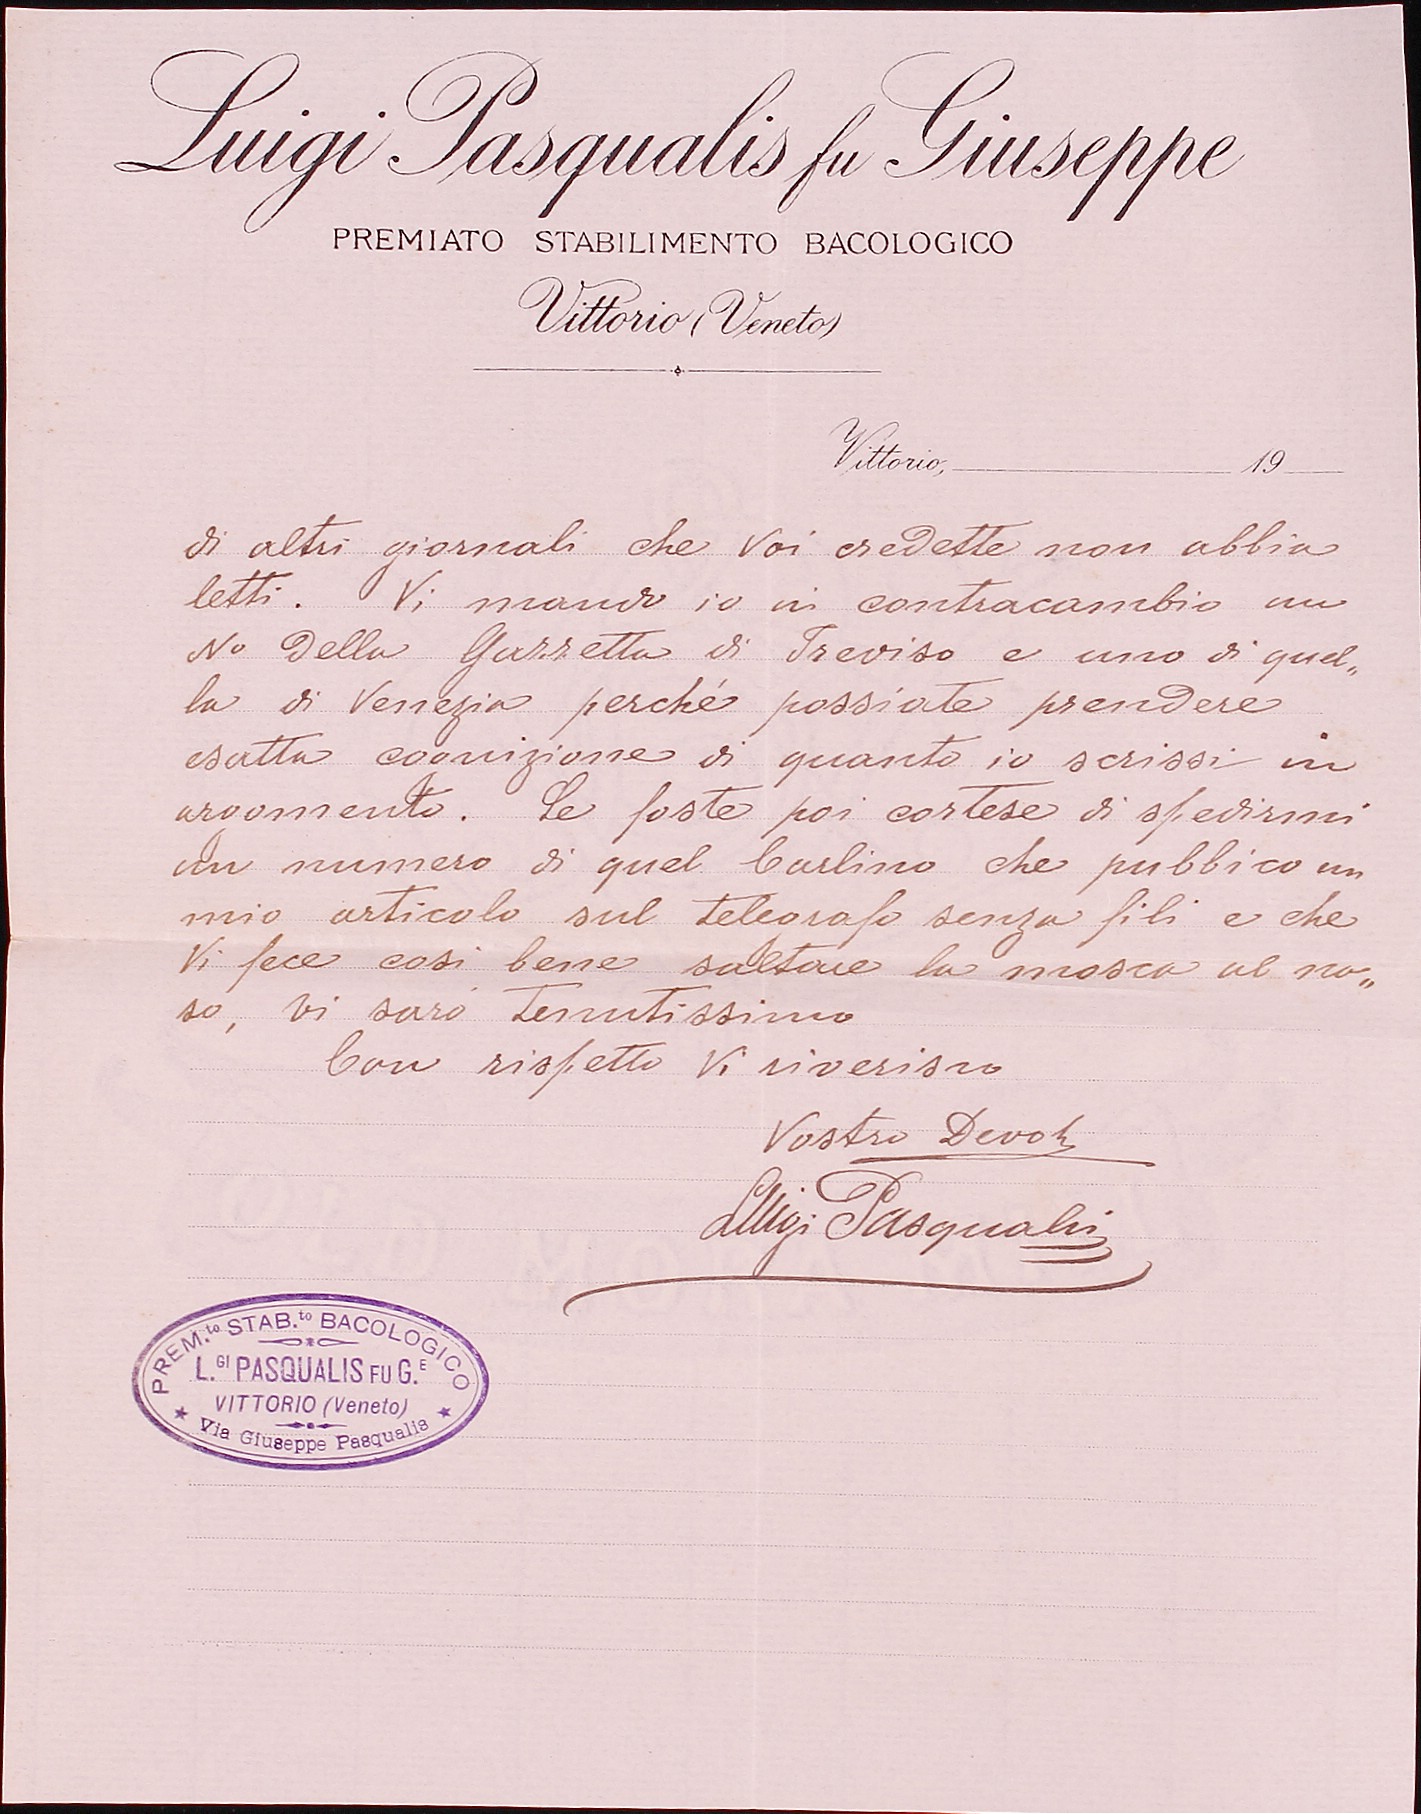 Luigi Pasqualis fu Giuseppe
PREMIATO STABILIMENTO BACOLOGICO
Vittorio (Veneto)
Vittorio, 19
di altri giornali che Voi credette non abbia
letti. Vi mando io in contracambio un
No della Gazzetta di Treviso e uno di quel„
la di Venezia perché possiate prendere
esatta cognizione di quanto io scrissi in
argomento. Se foste poi cortese di spedirmi
un numero di quel Carlino che pubblico un
mio articolo sul telegrafo senza fili e che
Vi fece cosi bene saltare la mosca al na„
so, Vi saró tenutissimo
Con rispetto Vi riverisco
Vostro Devot
Luigi Pasqualis
PREM.to STAB.to BACOLOGICO
L.GI PASQUALIS FU G.E
VITTORIO (Veneto)
★ Via Giuseppe Pasqualis ★